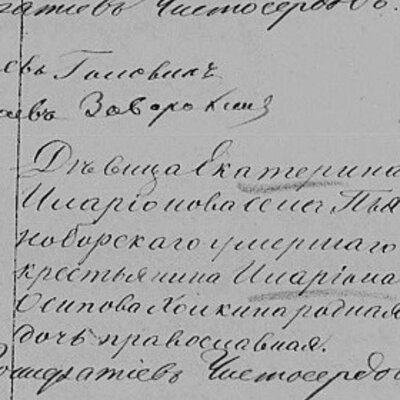 гратіевъ Чистосердовъ.
евъ Головихъ
аевъ Заворохинъ
Дѣвица Екатерина
Иларіонова села Пья
ноборскаго умершаго
крестьянина Иларіона
Осипова Хонкина родная
дочь православная.
Чистосердо